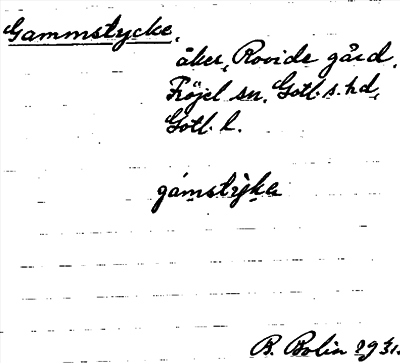 Gammstycke,
åker, Rovide gård,
Fröjel sn. Gotl. s. hd,
Gotl. l.
gámstỳke
B. Bolin 1931.